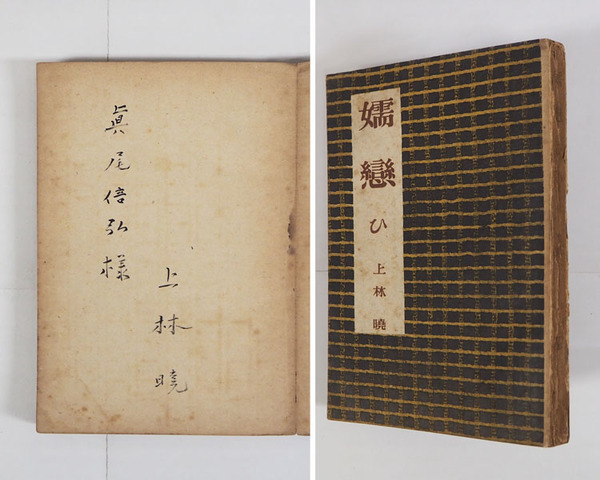 眞尾倍弘様
上林暁
嬬戀ひ
上林曉